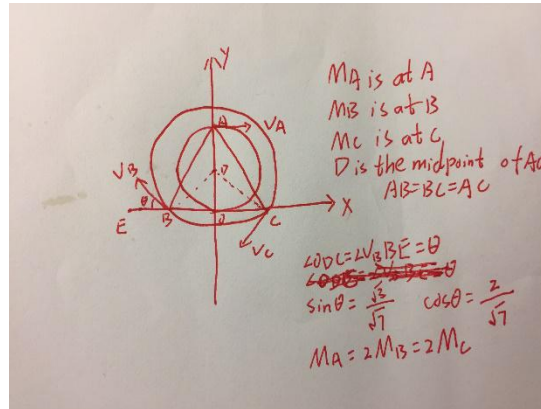 Y
A
VA
VB
θ
E
B
C
X
VC
MA is at A
MB is at B
MC is at C
D is the midpoint of AC
AB=BC=AC
∠ODC=∠VBBE=θ
sinθ=√3/√7 cosθ=2/√7
MA=2MB=2MC